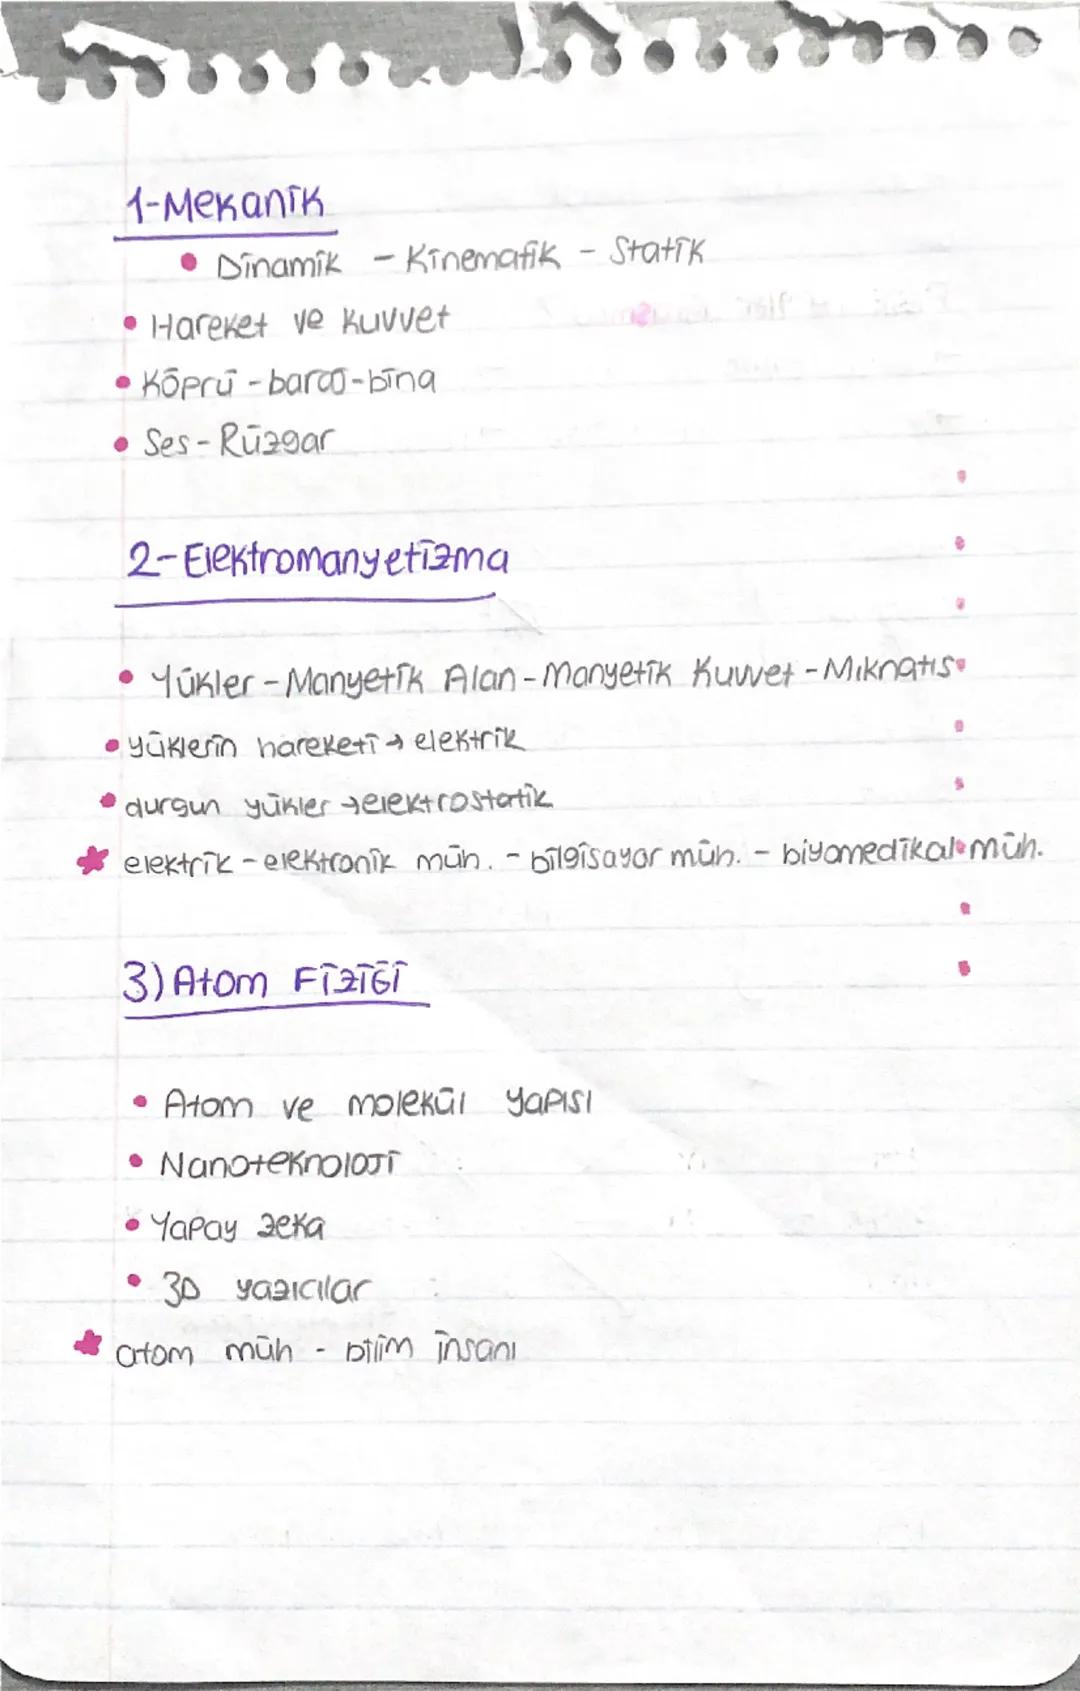 1-Mekanik
• Dinamik - Kinematik - Statik
• Hareket ve kuvvet
• Köprü - baraj - bina
• Ses - Rüzgar
2-Elektromanyetizma
• Yükler - Manyetik Alan - Manyetik Kuvvet - Mıknatıs
• yüklerin hareketi → elektrik
• durgun yükler → elektrostatik
* elektrik - elektronik müh. - bilgisayar müh. - biyomedikal müh.
3) Atom Fiziği
• Atom ve molekül yapısı
• Nanoteknoloji
• Yapay zeka
• 3D yazıcılar
* atom müh - bilim insanı